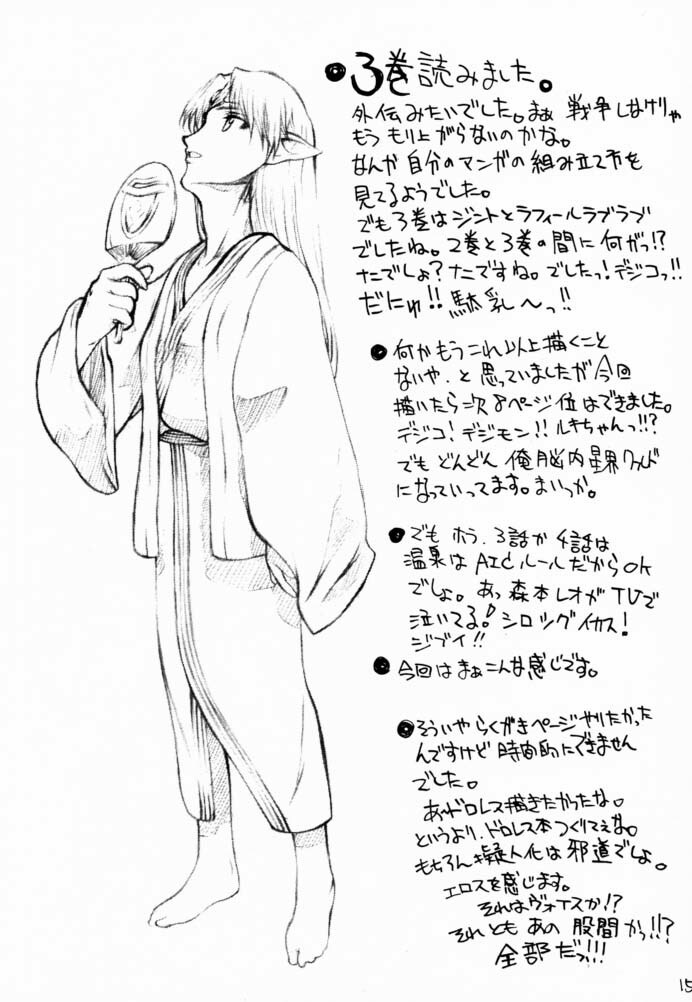 ●3巻読みました。
外伝みたいでした。まぁ 戦争しなけりゃ
もう もり上がらないのかな。
なんか自分のマンガの組み立て方を
見てるようでした。
でも3巻はジントとラフィールラブラブ
でしたね。2巻と3巻の間に何がっ!?
なでしょ?なですね。でしたっ!デジコっ!!
だにゅ!!駄乳〜っ!!
●何かもうこれ以上描くこと
ないや。と思っていましたが今回
描いたら次8ページ位はできました。
デジコ!デジモン!!ルキちゃんっ!!?
でもどんどん俺脳内星界ワールド
になっていってます。まいっか。
●でもホラ、3話か4話は
温泉はAICルールだからok
でしょ。あっ森本レオがTVで
泣いてる!シロツグイカス!
ジブイ!!
●今回はまぁこんな感じです。
●そういやらくがきページやりたかった
んですけど時間的にできません
でした。
あ、ドロレス描きたかったな。
というより、ドロレス本つくりてぇな。
もちろん擬人化は邪道でしょ。
エロスを感じます。
それはヴォイスか!?
それともあの股間かっ!!?
全部だっ!!!
15